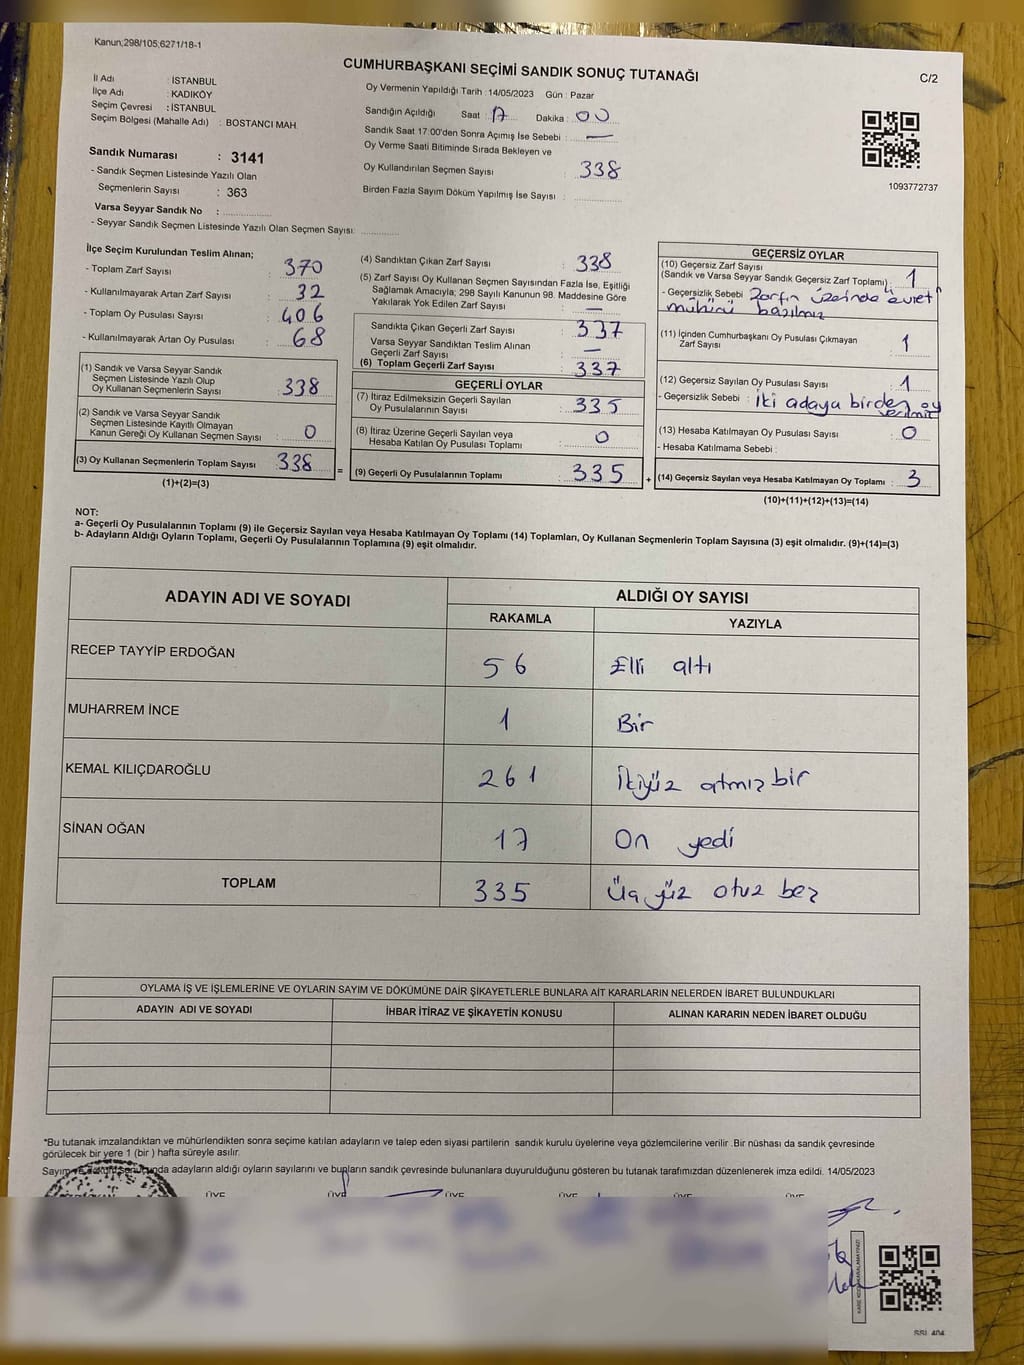 Kanun;298/105;6271/18-1
CUMHURBAŞKANI SEÇİMİ SANDIK SONUÇ TUTANAĞI
C/2
İl Adı : İSTANBUL
İlçe Adı : KADIKÖY
Seçim Çevresi : İSTANBUL
Seçim Bölgesi (Mahalle Adı) : BOSTANCI MAH.
Sandık Numarası : 3141
- Sandık Seçmen Listesinde Yazılı Olan
Seçmenlerin Sayısı : 363
Varsa Seyyar Sandık No :
- Seyyar Sandık Seçmen Listesinde Yazılı Olan Seçmen Sayısı:
Oy Vermenin Yapıldığı Tarih : 14/05/2023 Gün : Pazar
Sandığın Açıldığı Saat : 17 Dakika : 00
Sandık Saat 17:00'den Sonra Açımış İse Sebebi : —
Oy Verme Saati Bitiminde Sırada Bekleyen ve
Oy Kullandırılan Seçmen Sayısı : 338
Birden Fazla Sayım Döküm Yapılmış İse Sayısı :
1093772737
İlçe Seçim Kurulundan Teslim Alınan;
- Toplam Zarf Sayısı : 370
- Kullanılmayarak Artan Zarf Sayısı : 32
- Toplam Oy Pusulası Sayısı : 406
- Kullanılmayarak Artan Oy Pusulası : 68
(1) Sandık ve Varsa Seyyar Sandık
Seçmen Listesinde Yazılı Olup
Oy Kullanan Seçmenlerin Sayısı : 338
(2) Sandık ve Varsa Seyyar Sandık
Seçmen Listesinde Kayıtlı Olmayan
Kanun Gereği Oy Kullanan Seçmen Sayısı : 0
(3) Oy Kullanan Seçmenlerin Toplam Sayısı : 338 =
(1)+(2)=(3)
(4) Sandıktan Çıkan Zarf Sayısı : 338
(5) Zarf Sayısı Oy Kullanan Seçmen Sayısından Fazla İse, Eşitliği
Sağlamak Amacıyla; 298 Sayılı Kanunun 98. Maddesine Göre
Yakılarak Yok Edilen Zarf Sayısı : —
Sandıkta Çıkan Geçerli Zarf Sayısı : 337
Varsa Seyyar Sandıktan Teslim Alınan
Geçerli Zarf Sayısı : —
(6) Toplam Geçerli Zarf Sayısı : 337
GEÇERLİ OYLAR
(7) İtiraz Edilmeksizin Geçerli Sayılan
Oy Pusulalarının Sayısı : 335
(8) İtiraz Üzerine Geçerli Sayılan veya
Hesaba Katılan Oy Pusulası Toplamı : 0
(9) Geçerli Oy Pusulalarının Toplamı : 335 +
GEÇERSİZ OYLAR
(10) Geçersiz Zarf Sayısı
(Sandık ve Varsa Seyyar Sandık Geçersiz Zarf Toplamı) : 1
- Geçersizlik Sebebi : Zarfın üzeinde "evet"
mühürü basılmış
(11) İçinden Cumhurbaşkanı Oy Pusulası Çıkmayan
Zarf Sayısı : 1
(12) Geçersiz Sayılan Oy Pusulası Sayısı : 1
- Geçersizlik Sebebi : İki adaya birden oy
verilmiş
(13) Hesaba Katılmayan Oy Pusulası Sayısı : 0
- Hesaba Katılmama Sebebi :
(14) Geçersiz Sayılan veya Hesaba Katılmayan Oy Toplamı : 3
(10)+(11)+(12)+(13)=(14)
NOT:
a- Geçerli Oy Pusulalarının Toplamı (9) ile Geçersiz Sayılan veya Hesaba Katılmayan Oy Toplamı (14) Toplamları, Oy Kullanan Seçmenlerin Toplam Sayısına (3) eşit olmalıdır. (9)+(14)=(3)
b- Adayların Aldığı Oyların Toplamı, Geçerli Oy Pusulalarının Toplamına (9) eşit olmalıdır.
ADAYIN ADI VE SOYADI
ALDIĞI OY SAYISI
RAKAMLA YAZIYLA
RECEP TAYYİP ERDOĞAN 56 Elli altı
MUHARREM İNCE 1 Bir
KEMAL KILIÇDAROĞLU 261 İkiyüz atmış bir
SİNAN OĞAN 17 On yedi
TOPLAM 335 Üç yüz otuz beş
OYLAMA İŞ VE İŞLEMLERİNE VE OYLARIN SAYIM VE DÖKÜMÜNE DAİR ŞİKAYETLERLE BUNLARA AİT KARARLARIN NELERDEN İBARET BULUNDUKLARI
ADAYIN ADI VE SOYADI İHBAR İTİRAZ VE ŞİKAYETİN KONUSU ALINAN KARARIN NEDEN İBARET OLDUĞU
*Bu tutanak imzalandıktan ve mühürlendikten sonra seçime katılan adayların ve talep eden siyasi partilerin sandık kurulu üyelerine veya gözlemcilerine verilir .Bir nüshası da sandık çevresinde
görülecek bir yere 1 (bir ) hafta süreyle asılır.
Sayım ve döküm sonucunda adayların aldığı oyların sayılarını ve bunların sandık çevresinde bulunanlara duyurulduğunu gösteren bu tutanak tarafımızdan düzenlenerek imza edildi. 14/05/2023
ÜYE ÜYE ÜYE ÜYE ÜYE ÜYE